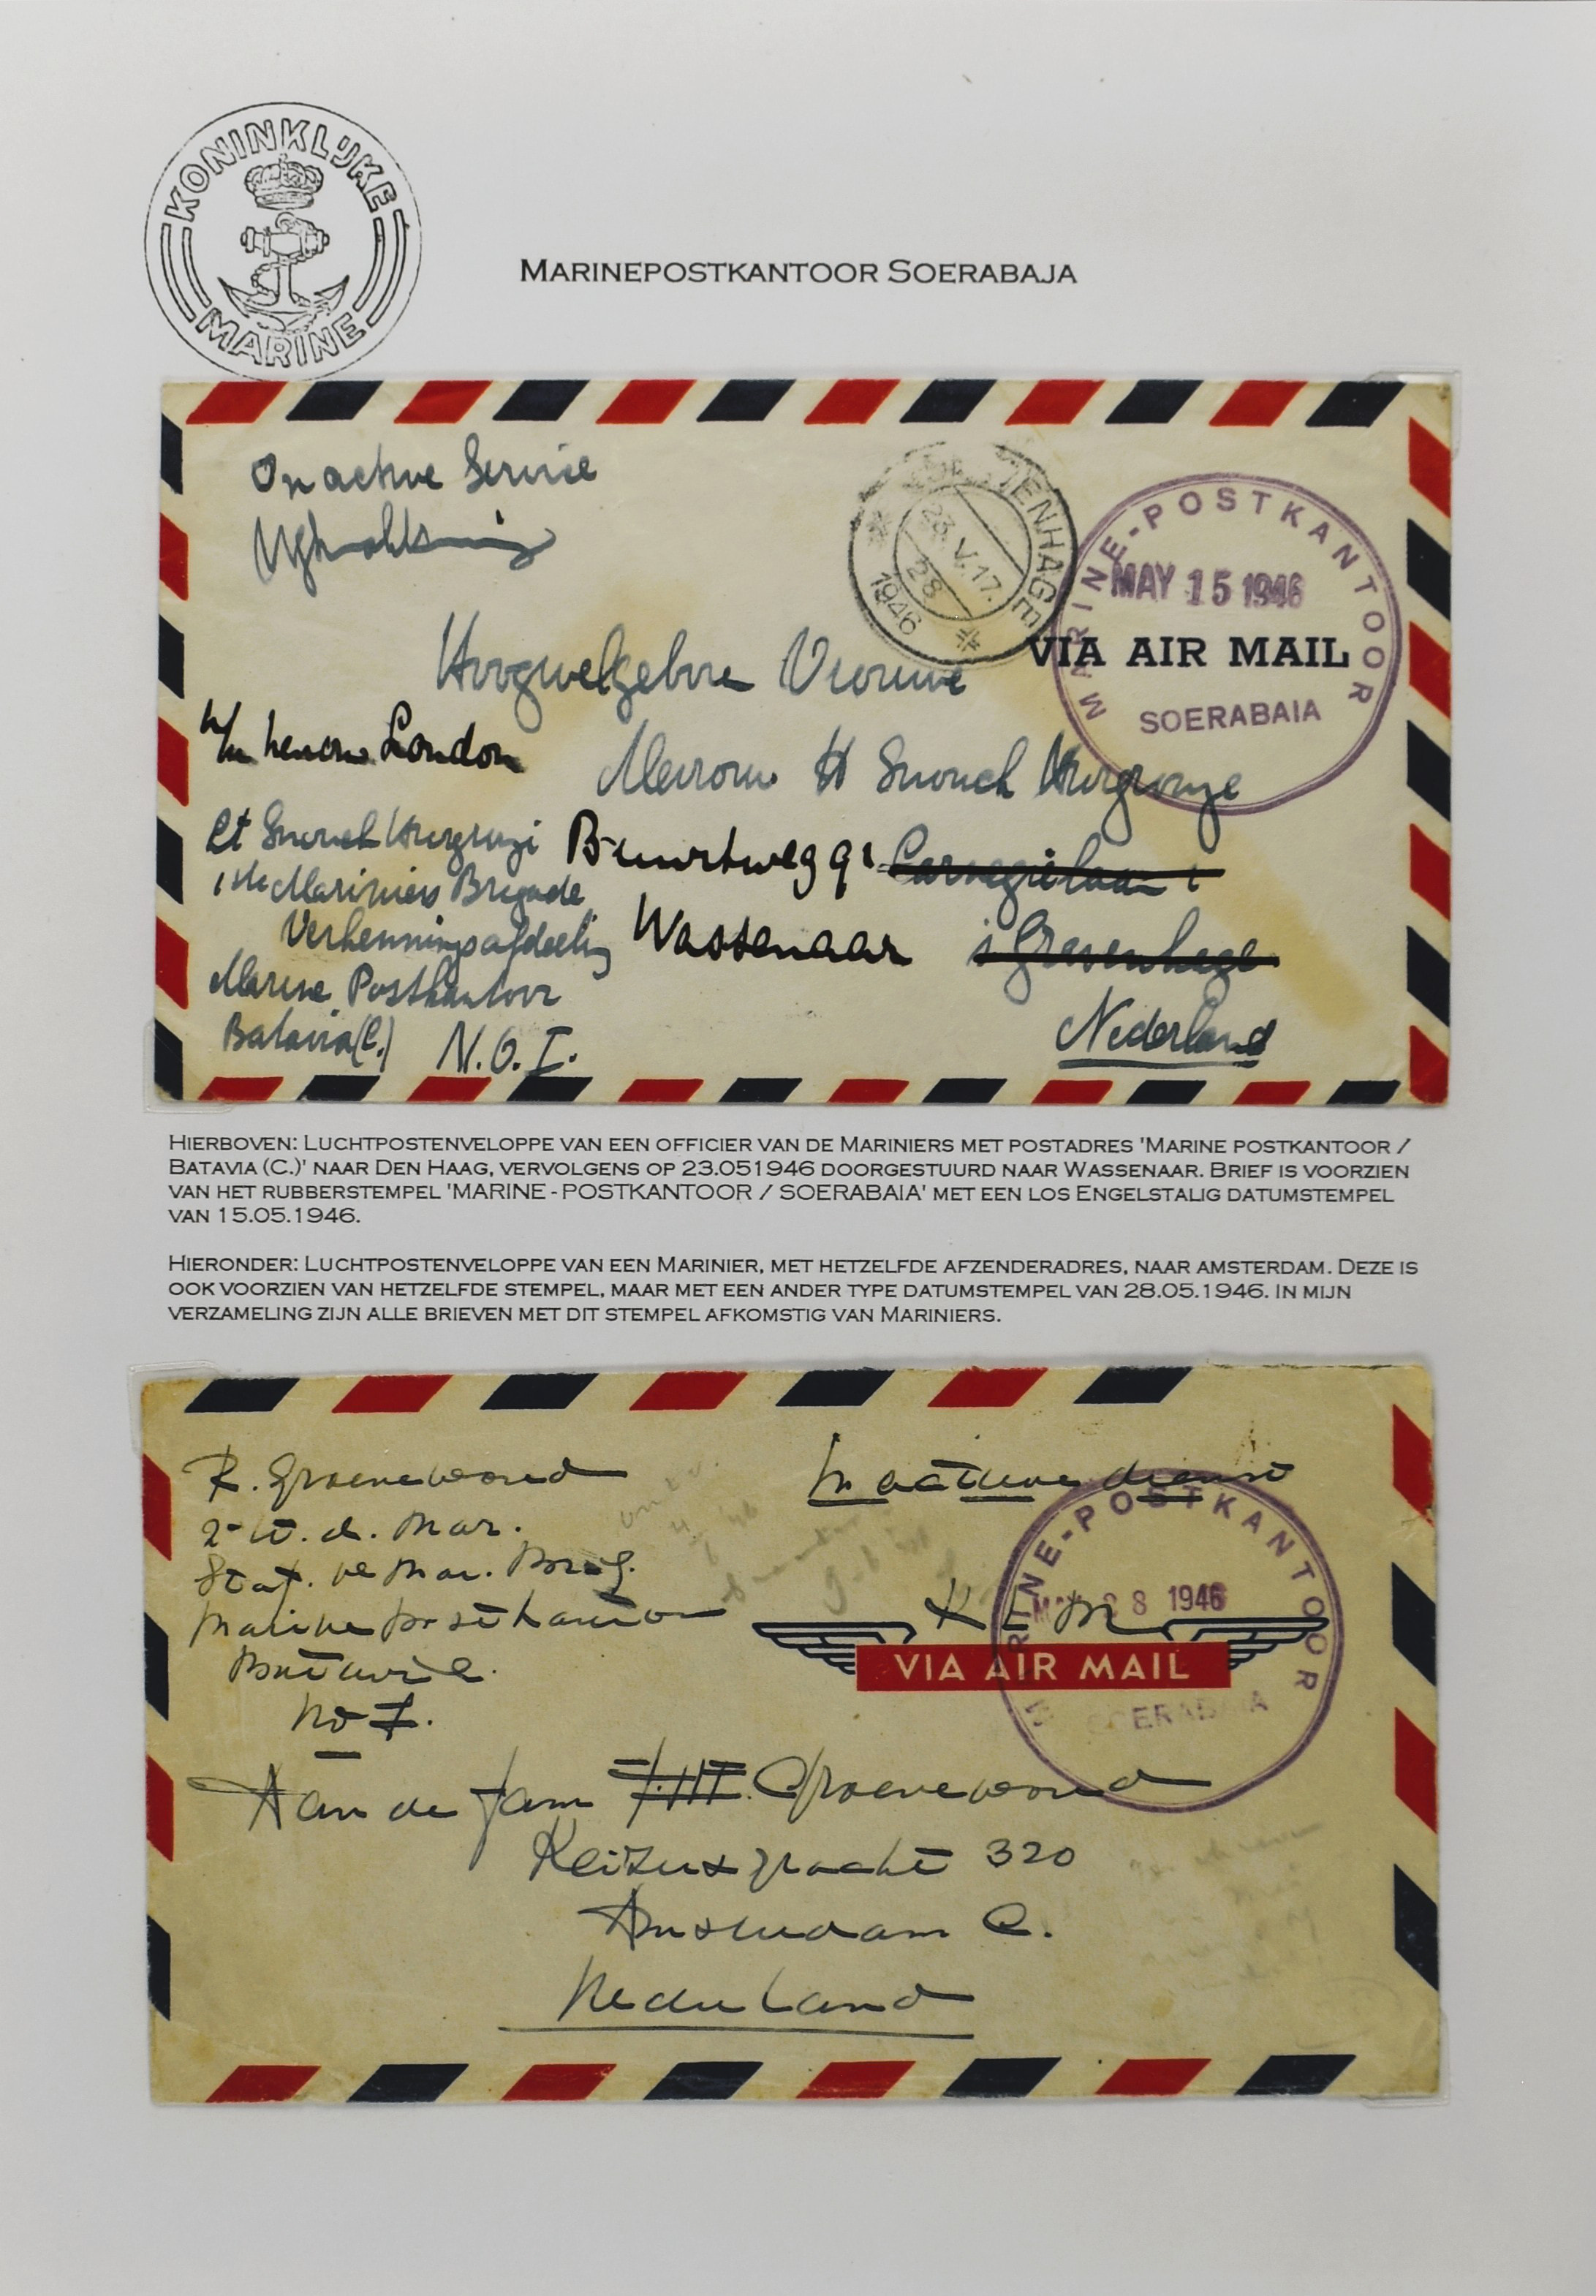 KONINKLIJKE
MARINE
MARINEPOSTKANTOOR SOERABAJA
On active Service
'S GRAVENHAGE
23.V.17.
28
1946
MARINE-POSTKANTOOR
MAY 15 1946
VIA AIR MAIL
SOERABAIA
Hoogwelgeboren Vrouwe
London
Mevrouw H Snouck Hurgronje
Lt Snouck Hurgronje
Buurtweg 91
Carnegielaan 1
1ste Mariniers Brigade
Verkenningsafdeeling
Wassenaar
's Gravenhage
Marine Postkantoor
Batavia (C.) N.O.I.
Nederland
HIERBOVEN: LUCHTPOSTENVELOPPE VAN EEN OFFICIER VAN DE MARINIERS MET POSTADRES 'MARINE POSTKANTOOR /
BATAVIA (C.)' NAAR DEN HAAG, VERVOLGENS OP 23.051946 DOORGESTUURD NAAR WASSENAAR. BRIEF IS VOORZIEN
VAN HET RUBBERSTEMPEL 'MARINE - POSTKANTOOR / SOERABAIA' MET EEN LOS ENGELSTALIG DATUMSTEMPEL
VAN 15.05.1946.
HIERONDER: LUCHTPOSTENVELOPPE VAN EEN MARINIER, MET HETZELFDE AFZENDERADRES, NAAR AMSTERDAM. DEZE IS
OOK VOORZIEN VAN HETZELFDE STEMPEL, MAAR MET EEN ANDER TYPE DATUMSTEMPEL VAN 28.05.1946. IN MIJN
VERZAMELING ZIJN ALLE BRIEVEN MET DIT STEMPEL AFKOMSTIG VAN MARINIERS.
R. Groenewoud
2e Lt. d. Mar.
Staf. Ve Mar. Brig.
Marine Postkantoor
Batavia C.
NOI.
In actieve dienst
MARINE-POSTKANTOOR
MAY 28 1946
KLM
VIA AIR MAIL
SOERABAIA
Aan de fam Groenewoud
Keizersgracht 320
Amsterdam C.
Nederland